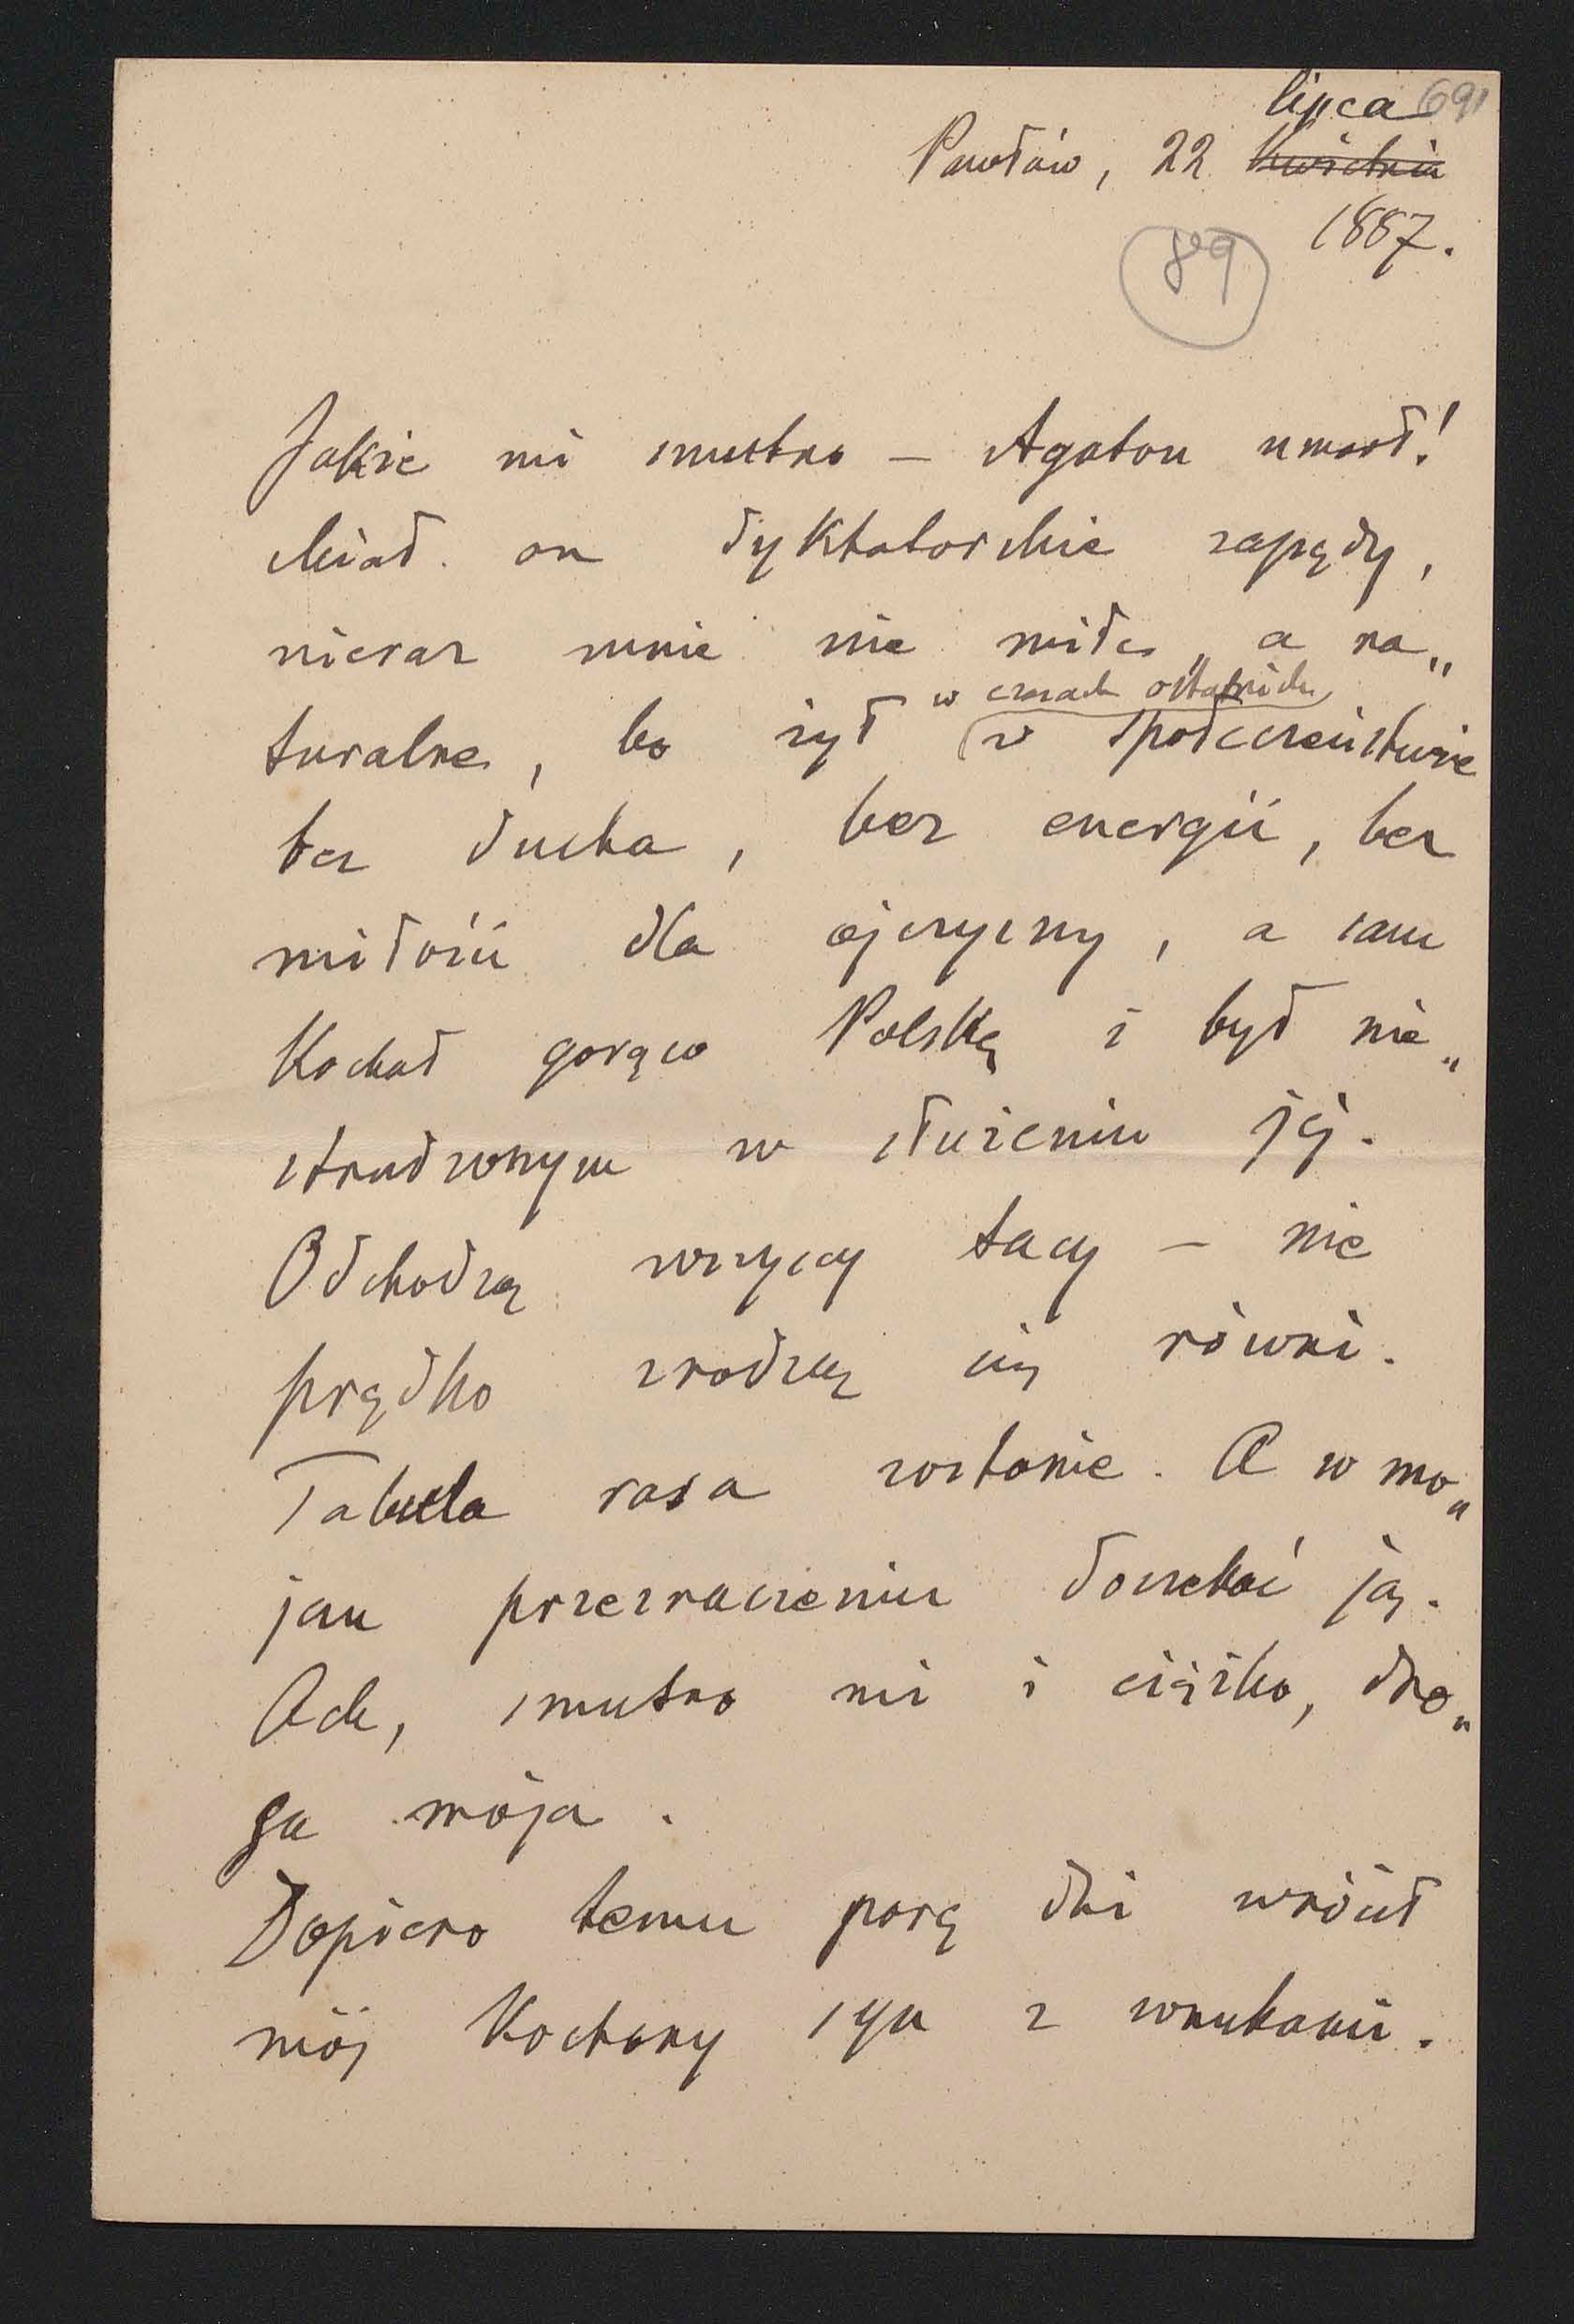 lipca 691
Pawłów, 22 kwietnia
1887.
89
Jakże mi smutno — Agaton umarł!
Miał on dyktatorskie zapędy,
nieraz mnie nie miłe, a na„
turalne, bo żył w społeczeństwie
w czasach ostatnich
bez ducha, bez energii, bez
miłości dla ojczyzny, a sam
kochał gorąco Polskę i był nie„
strudzonym w służeniu jéj.
Odchodzą wszyscy tacy — nie
prędko zrodzą się równi.
Tabula rasa zostanie. A w mo„
jem przeznaczeniu doczekać ją.
Ach, smutno mi i ciężko, dro„
ga moja.
Dopiero temu parę dni wrócił
mój kochany syn z wnukami.